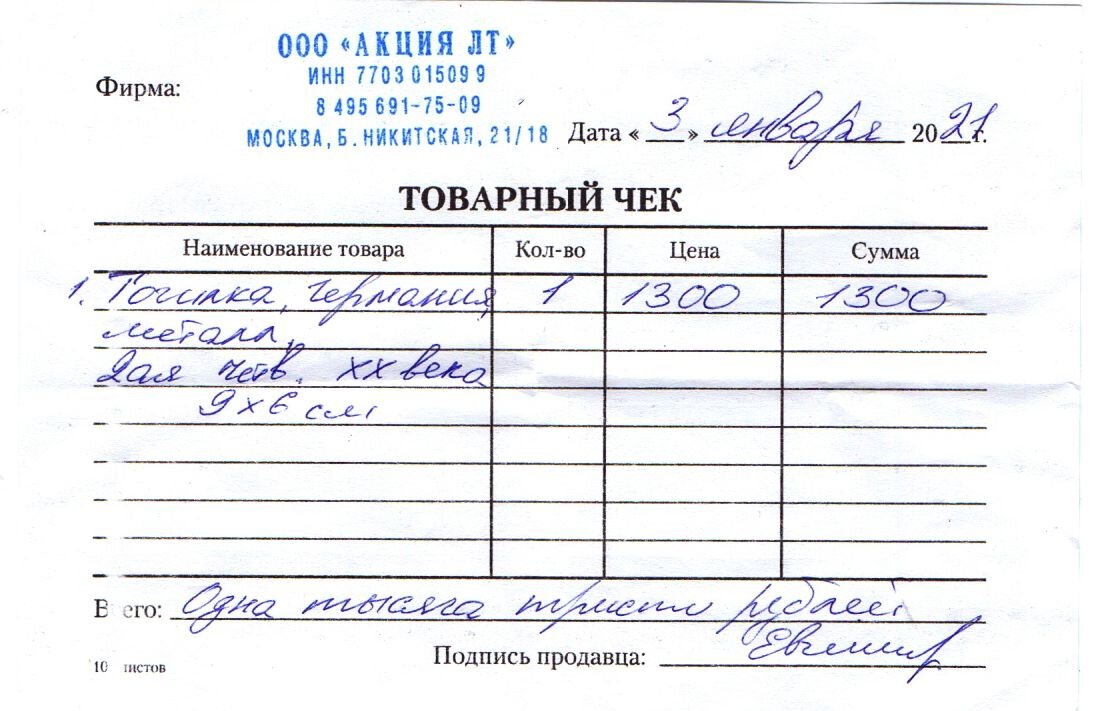 ООО «АКЦИЯ ЛТ»
ИНН 7703015099
8 495 691-75-09
МОСКВА, Б. НИКИТСКАЯ, 21/18
Фирма:
Дата « 3 » января 2021 г.
ТОВАРНЫЙ ЧЕК
Наименование товара Кол-во Цена Сумма
1. Точилка, Германия, 1 1300 1300
металл,
2ая четв. XX века
9 x 6 см
Всего: Одна тысяча триста рублей
Подпись продавца:
10 листов